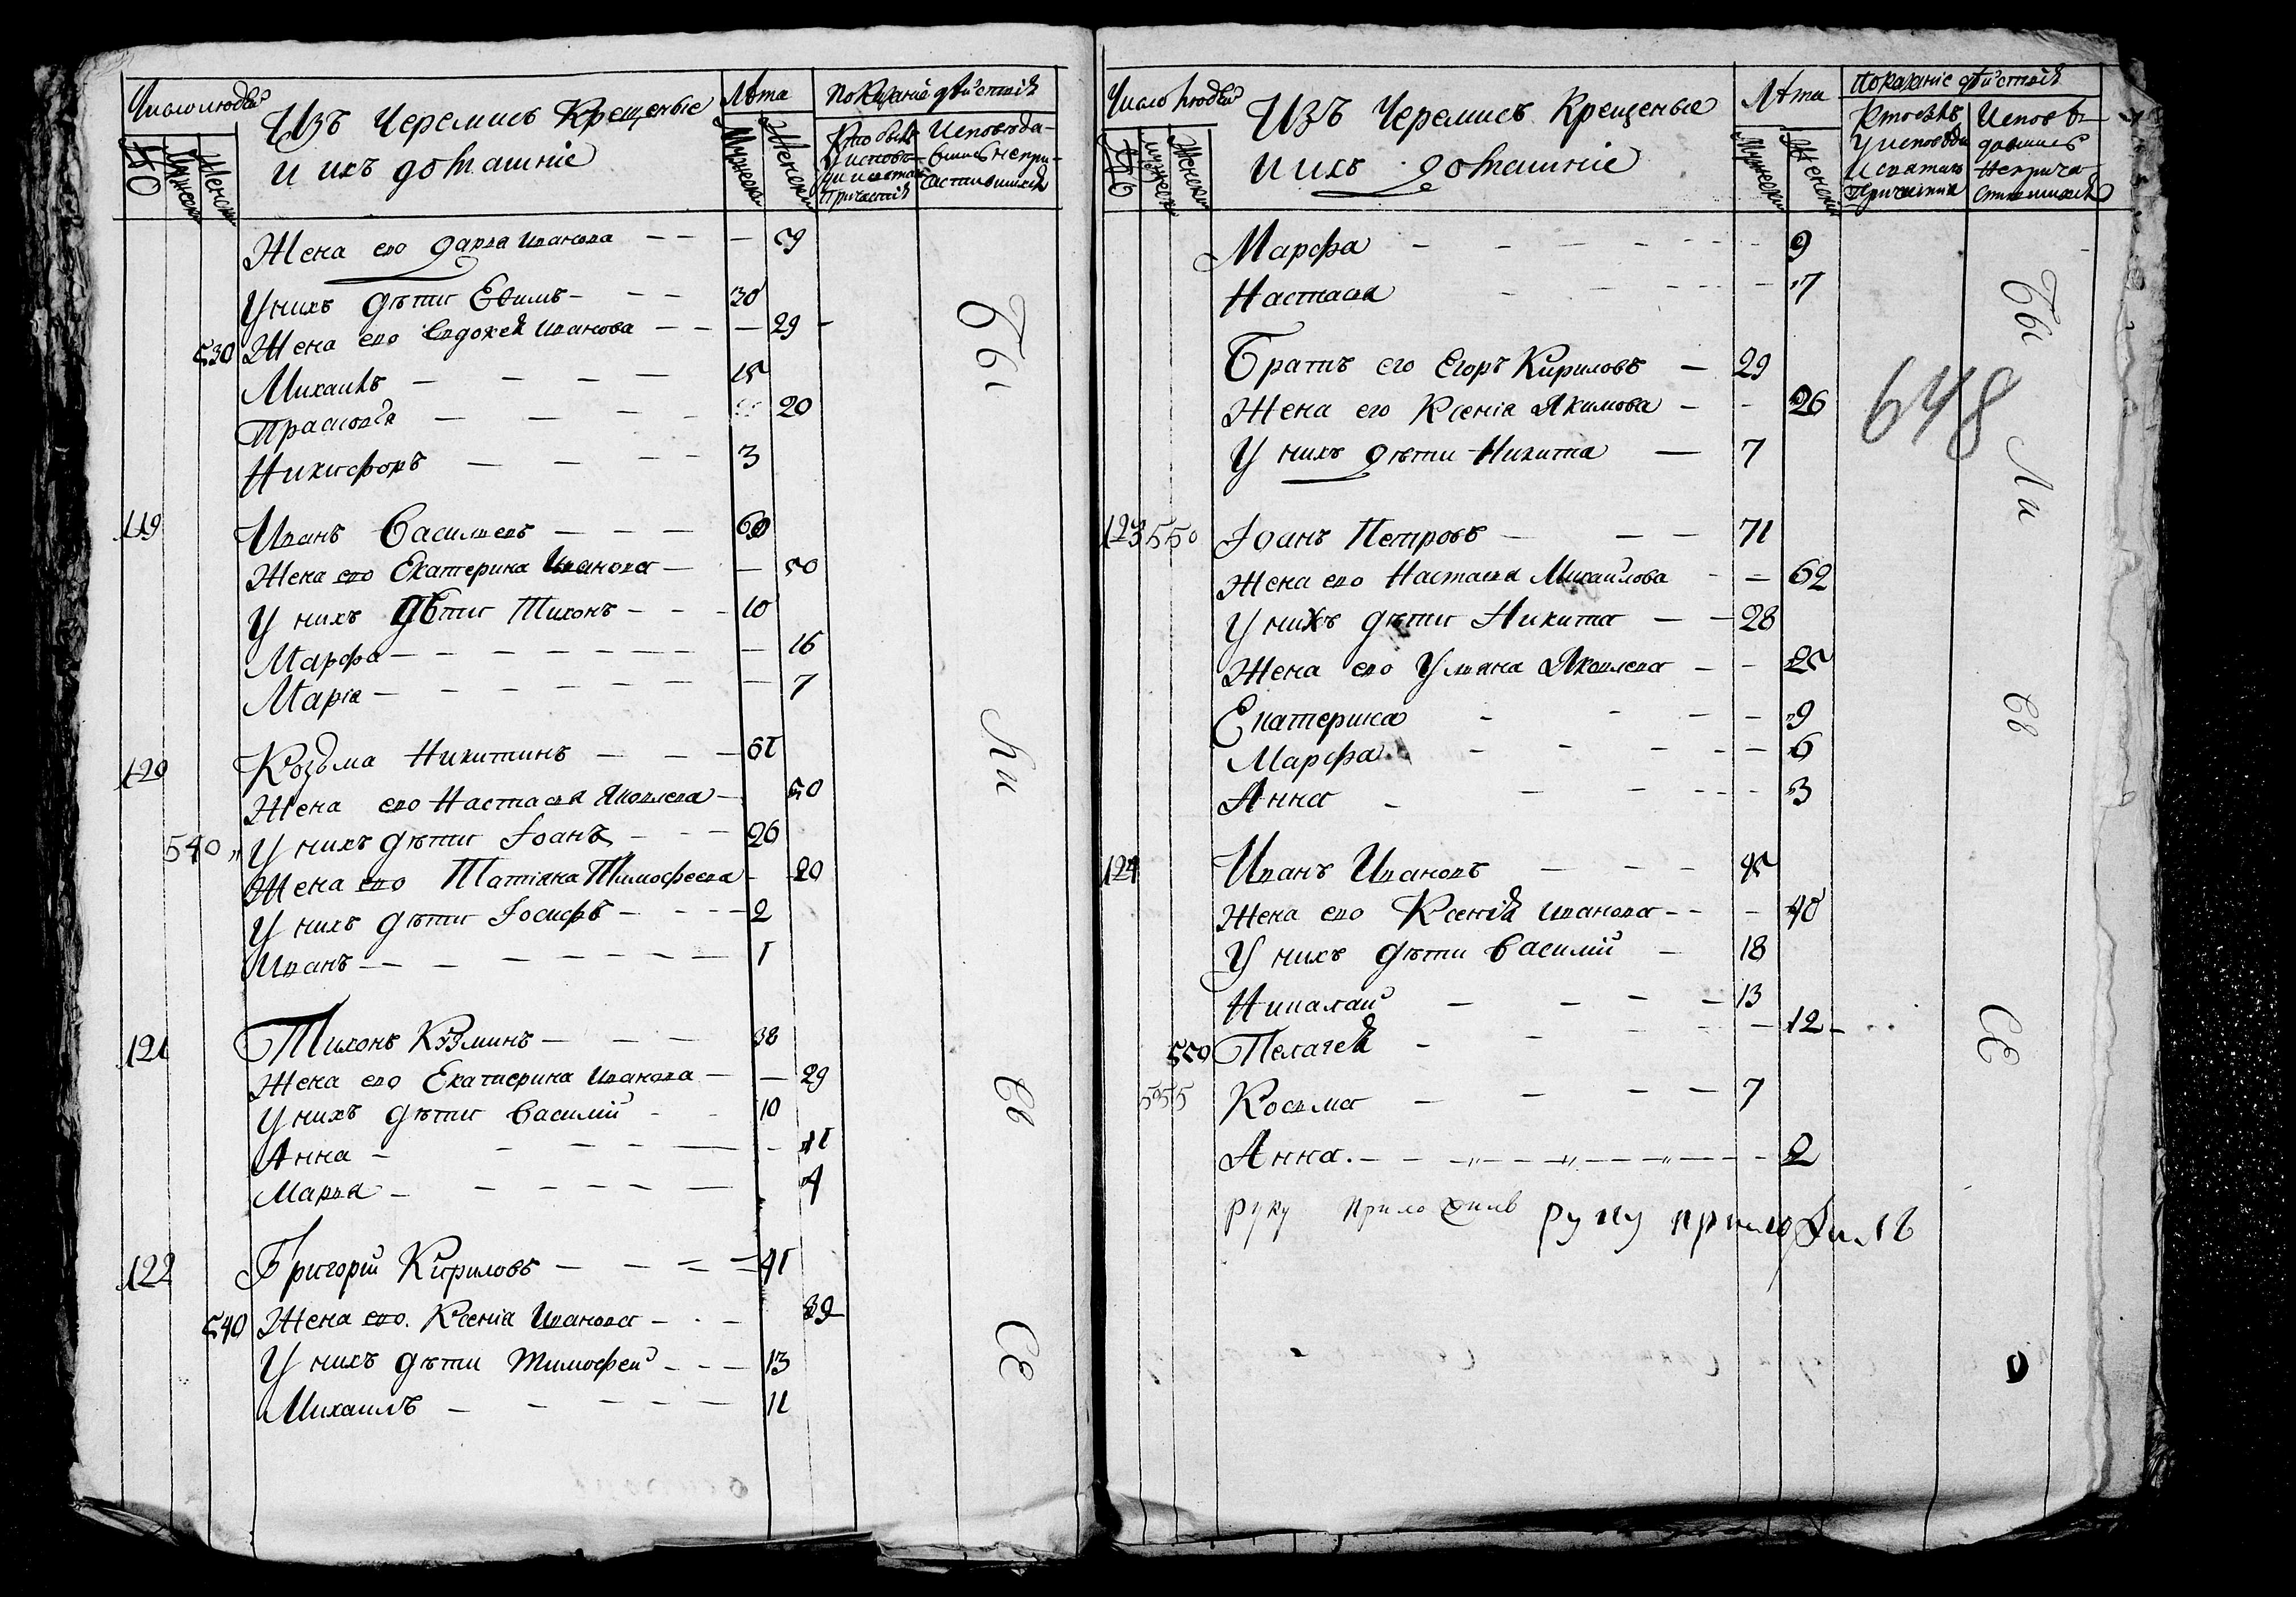 Число людей
Изъ Черемисъ Крещеные
и ихъ домашніе
Лѣта
Показаніе дѣйствія
№
Мужеск
Женск
Мужеск
Женски
Кто былъ у исповѣди и святаго причастія
Исповѣдавшись непричастившихся
Жена его дарья иванова — — — 59
У нихъ дѣти Ефимъ — — — 30
530 Жена его Евдокея иванова — — — 29
Михаилъ — — — — 15
Прасковья — — — — 20
Никифоръ — — — — 3
119 Иванъ Василиевъ — — — 60
Жена его Екатерина Иванова — — 50
У нихъ дѣти Тихонъ — — — 10
Марфа — — — — — — — — 16
Марія — — — — — — — 7
120 Козьма Никитинъ — — — 61
Жена его Настасья Яковлева — 50
540 У нихъ дѣти Іоанъ — — — 26
Жена его Татіана Тимофеева — 20
У нихъ дѣти Іосифъ — — — — 2
Иванъ — — — — — — — — 1
121 Тихонъ Кузминъ — — — 38
Жена его Екатерина Иванова — — 29
У нихъ дѣти Василий — — 10
Анна — — — — — — 11
Марья — — — — — — 4
122 Григорий Кириловъ — — — — 41
540 Жена его. Ксенія Иванова — — — 39
У нихъ дѣти Тимофей — — — 13
Михаилъ — — — — — 11
Бы
ли
Св
СЕ
Число людей
Изъ Черемисъ Крещеные
и ихъ домашніе
Лѣта
Показаніе дѣйствія
№
мужеск
Женски
Мужеск
Женский
Кто былъ у исповѣди и святаго причастия
Исповѣдавшись непричастившихся
Марфа — — — — — — 9
Настасья — — — — — 7
Братъ его Егоръ Кириловъ — 29
Жена его Ксенія Якимова — — 26
У нихъ дѣти Никита — 7
648
123 550 Іоанъ Петровъ — — — 71
Жена его Настасья Михайлова — — 62
У нихъ дѣти Никита — — 28
Жена его Ульяна Яковлева — — 25
Екатерина — — — — 9
Марфа — — — — — 6
Анна — — — — — 3
124 Иванъ Ивановъ — — — 45
Жена его Ксенія иванова — — — 40
У нихъ дѣти Василий — 18
Николай — — — — 13
550 Пелагея — — — — — 12
555 Косьма — — — — 7
Анна. — — — — — — — — 2
руку приложилъ руку приложилъ
Бы
Ли
Св
СЕ